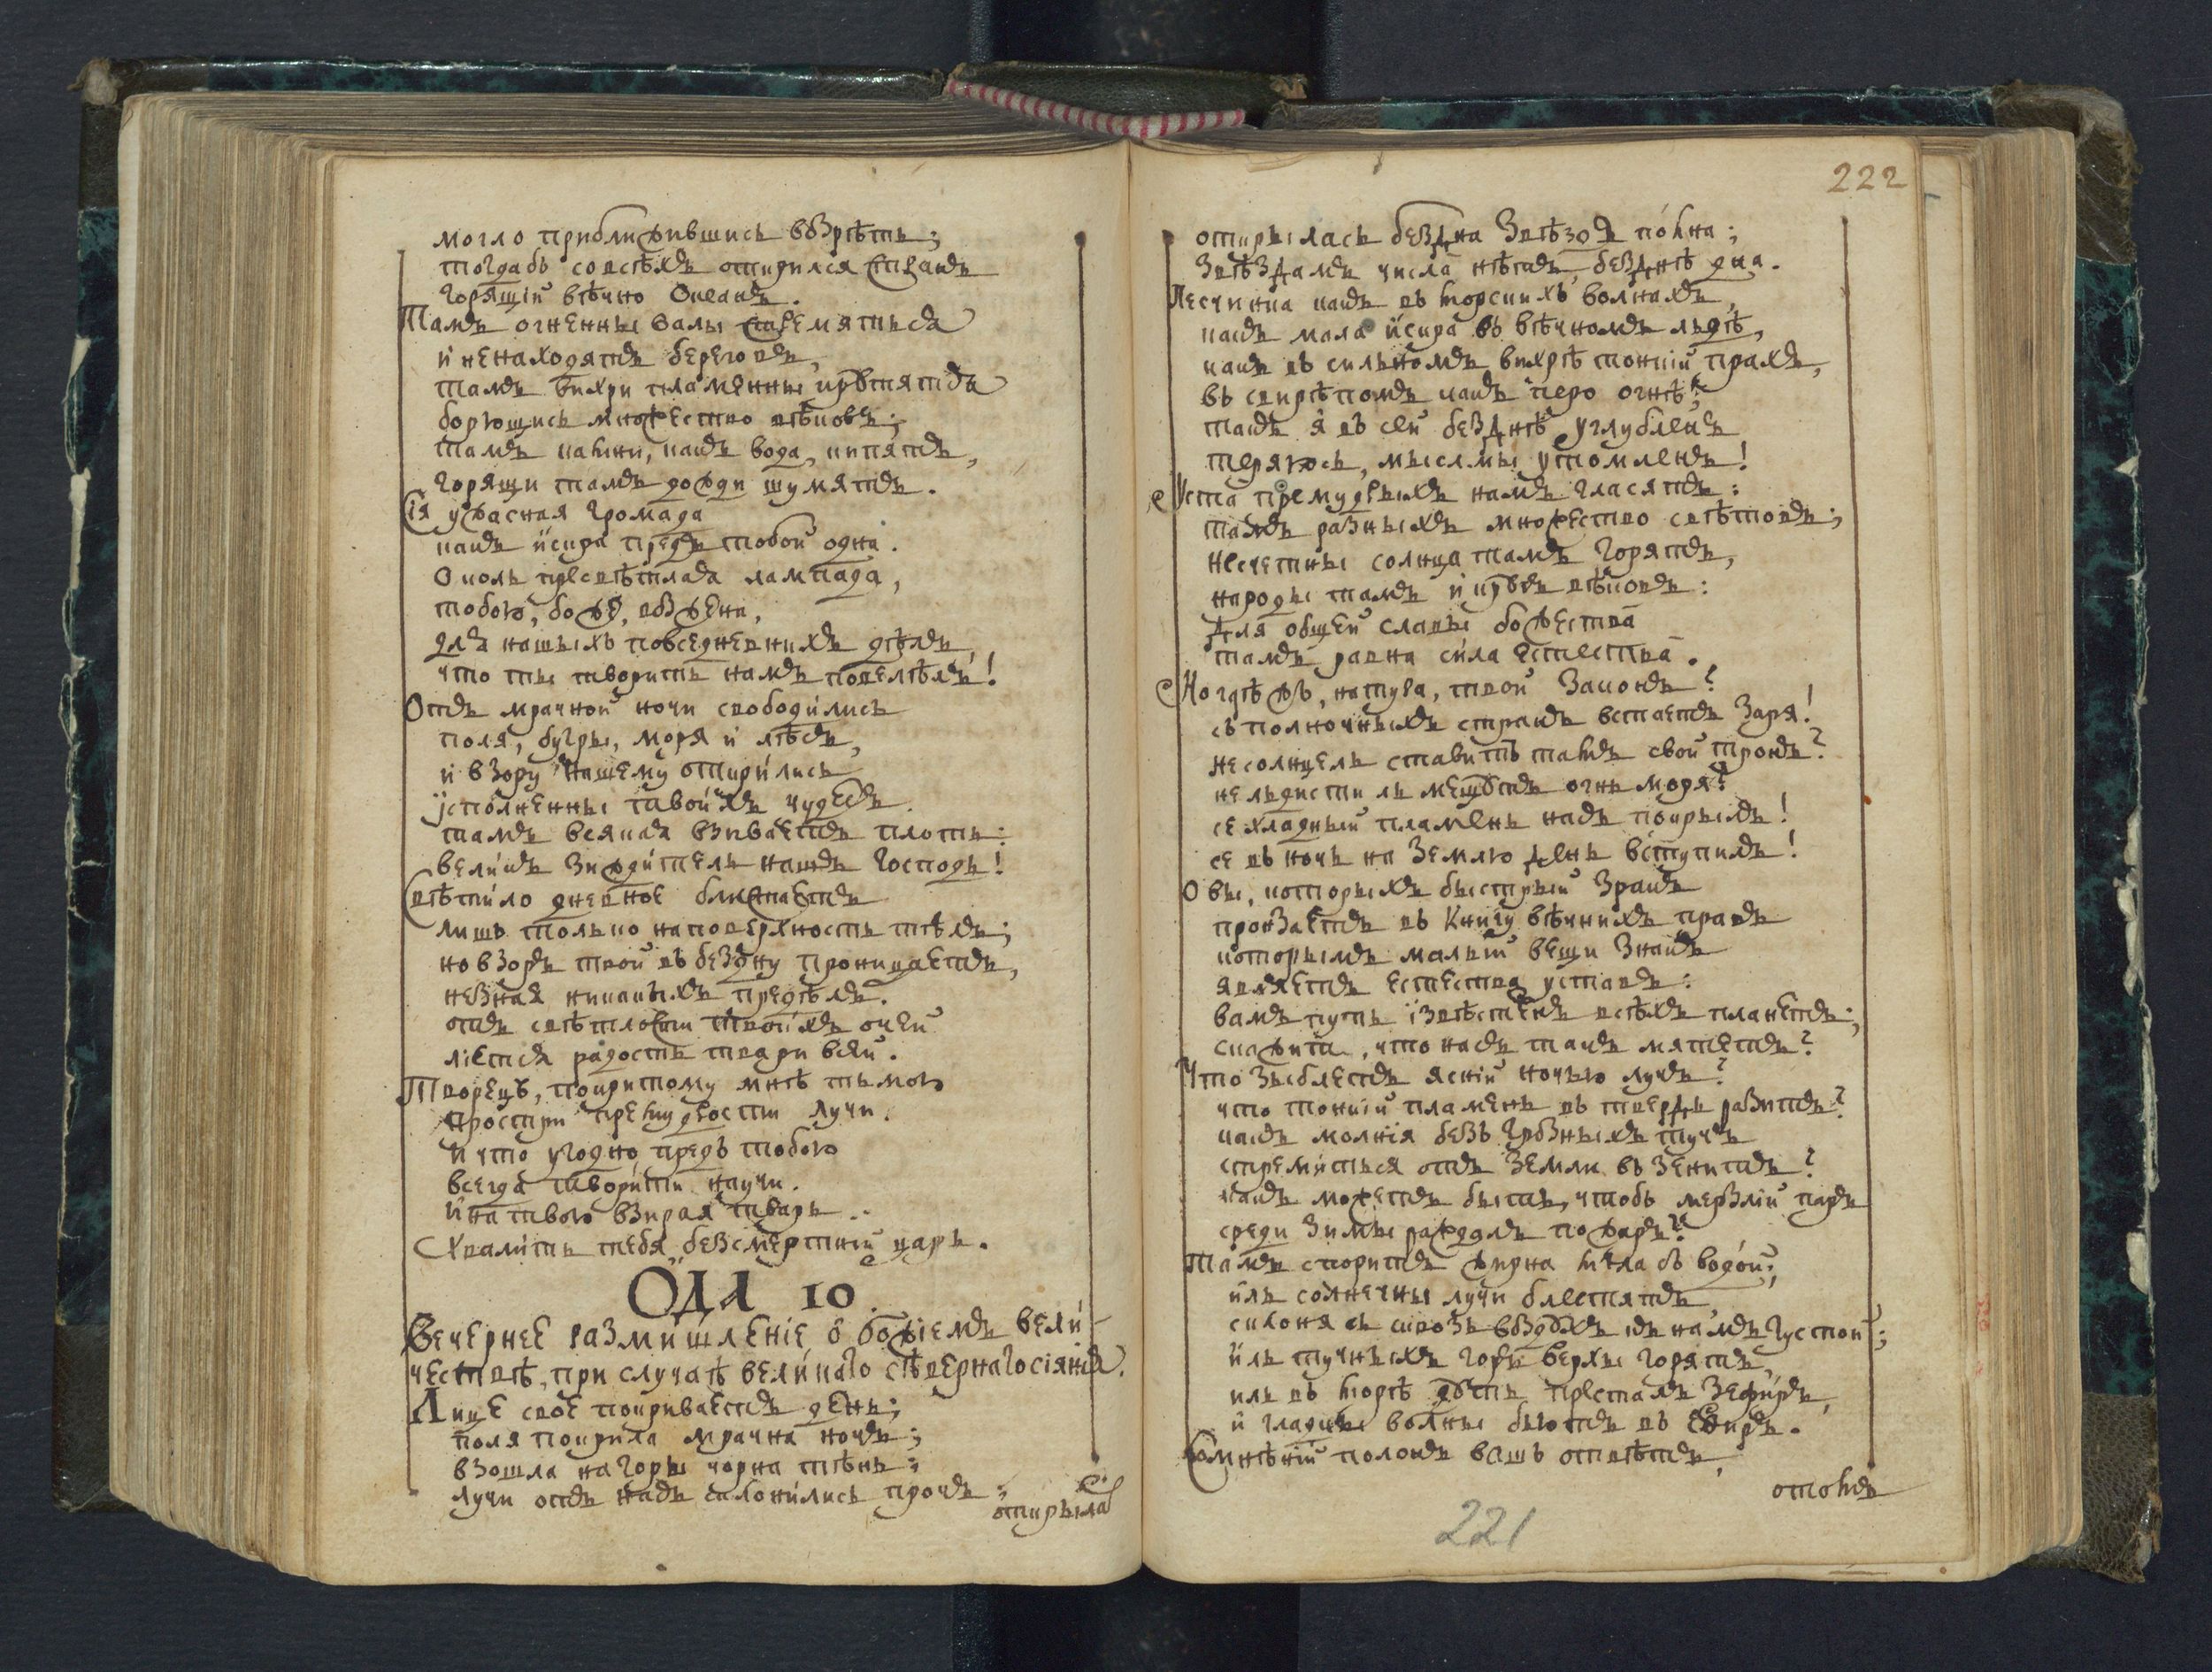 могло приближившись возрѣть;
тогдабъ совсѣхъ открился странъ
горящій вѣчно Океанъ.
Тамъ огненны валы стремяться
и ненаходятъ береговъ,
тамъ вихри пламенны крутятъся
борющись множество вѣковъ;
тамъ камни, какъ вода, кипятъ,
горящи тамъ дожди шумятъ.
Сія ужасная громада
какъ искра предъ тобой одна.
О коль пресвѣтлая лампада,
тобою, боже, возжена,
для нашыхъ повседневнихъ дѣлъ,
что ты творить намъ повелѣлъ!
Отъ мрачной ночи свободились
поля, бугры, моря и лѣсъ,
и взору нашему открились
исполненны твоихъ чудесъ.
тамъ всякая взиваетъ плоть:
великъ Зиждитель нашъ Господь!
Свѣтило дневное блистаетъ
лишь только наповерхность тѣлъ;
но взоръ твой въ бездну проницаетъ,
незная никакихъ предѣлъ.
отъ свѣтлости твоихъ очей
ліется радость твари всей.
Творецъ, покритому мнѣ тьмою
простри премудрости лучи.
и что угодно предъ тобою
всегда творити научи.
И на твою взирая тварь
Хвалить тебя безсмертній царь.
ОДА 10.
Вечернее размишленіе о божіемъ вели-
чествѣ, при случаѣ великаго сѣвернаго сіянія.
Лице свое покриваетъ день;
поля покрила мрачна ночь;
взошла на горы чорна тѣнь;
лучи отъ насъ склонились прочь;
открыла
222
открылась бездна звѣздъ полна;
звѣздамъ числа нѣтъ, безднѣ дна.
Песчинка какъ въ морскихъ волнахъ,
какъ мала искра въ вѣчномъ льдѣ,
какъ въ сильномъ вихрѣ тонкій прахъ,
въ свирѣпомъ какъ перо огнѣ;
такъ я въ сей безднѣ углубленъ
теряюсь, мыслмы утомленъ!
Уста премудрыхъ намъ гласятъ:
тамъ разныхъ множество свѣтовъ;
несчетны солнца тамъ горятъ,
народы тамъ и кругъ вѣковъ:
для общей славы божества
тамъ равна сила естества.
Но гдѣ жъ, натура, твой законъ?
съ полночныхъ странъ встаетъ заря!
не солнцель ставитъ тамъ свой тронъ?
не льдисти ль мещутъ огнь моря?
се хладный пламень насъ покрылъ!
се въ ночь на землю день вступилъ!
О вы, которыхъ быстрый зракъ
пронзаетъ въ книгу вѣчнихъ правъ
которымъ малый вещи знакъ
являетъ естества уставъ:
вамъ путь извѣстенъ всѣхъ планетъ;
скажите, что насъ такъ мятетъ?
Что зыблетъ ясній ночью лучъ?
что тонкій пламень въ твердь разитъ?
какъ молнія безъ грозныхъ тучъ
стремиться отъ земли въ зенитъ?
какъ можетъ быть, чтобъ мерзлій паръ
среди зимы раждалъ пожаръ?
Тамъ споритъ жирна мгла съ водой;
иль солнечны лучи блестятъ
склонясь сквозь воздухъ къ намъ густой;
иль тучныхъ горъ верхы горятъ,
иль въ морѣ дуть престалъ зефиръ,
и гладкы волны бьютъ въ ефиръ.
Сомнѣній полонъ вашъ отвѣтъ
отомъ
221